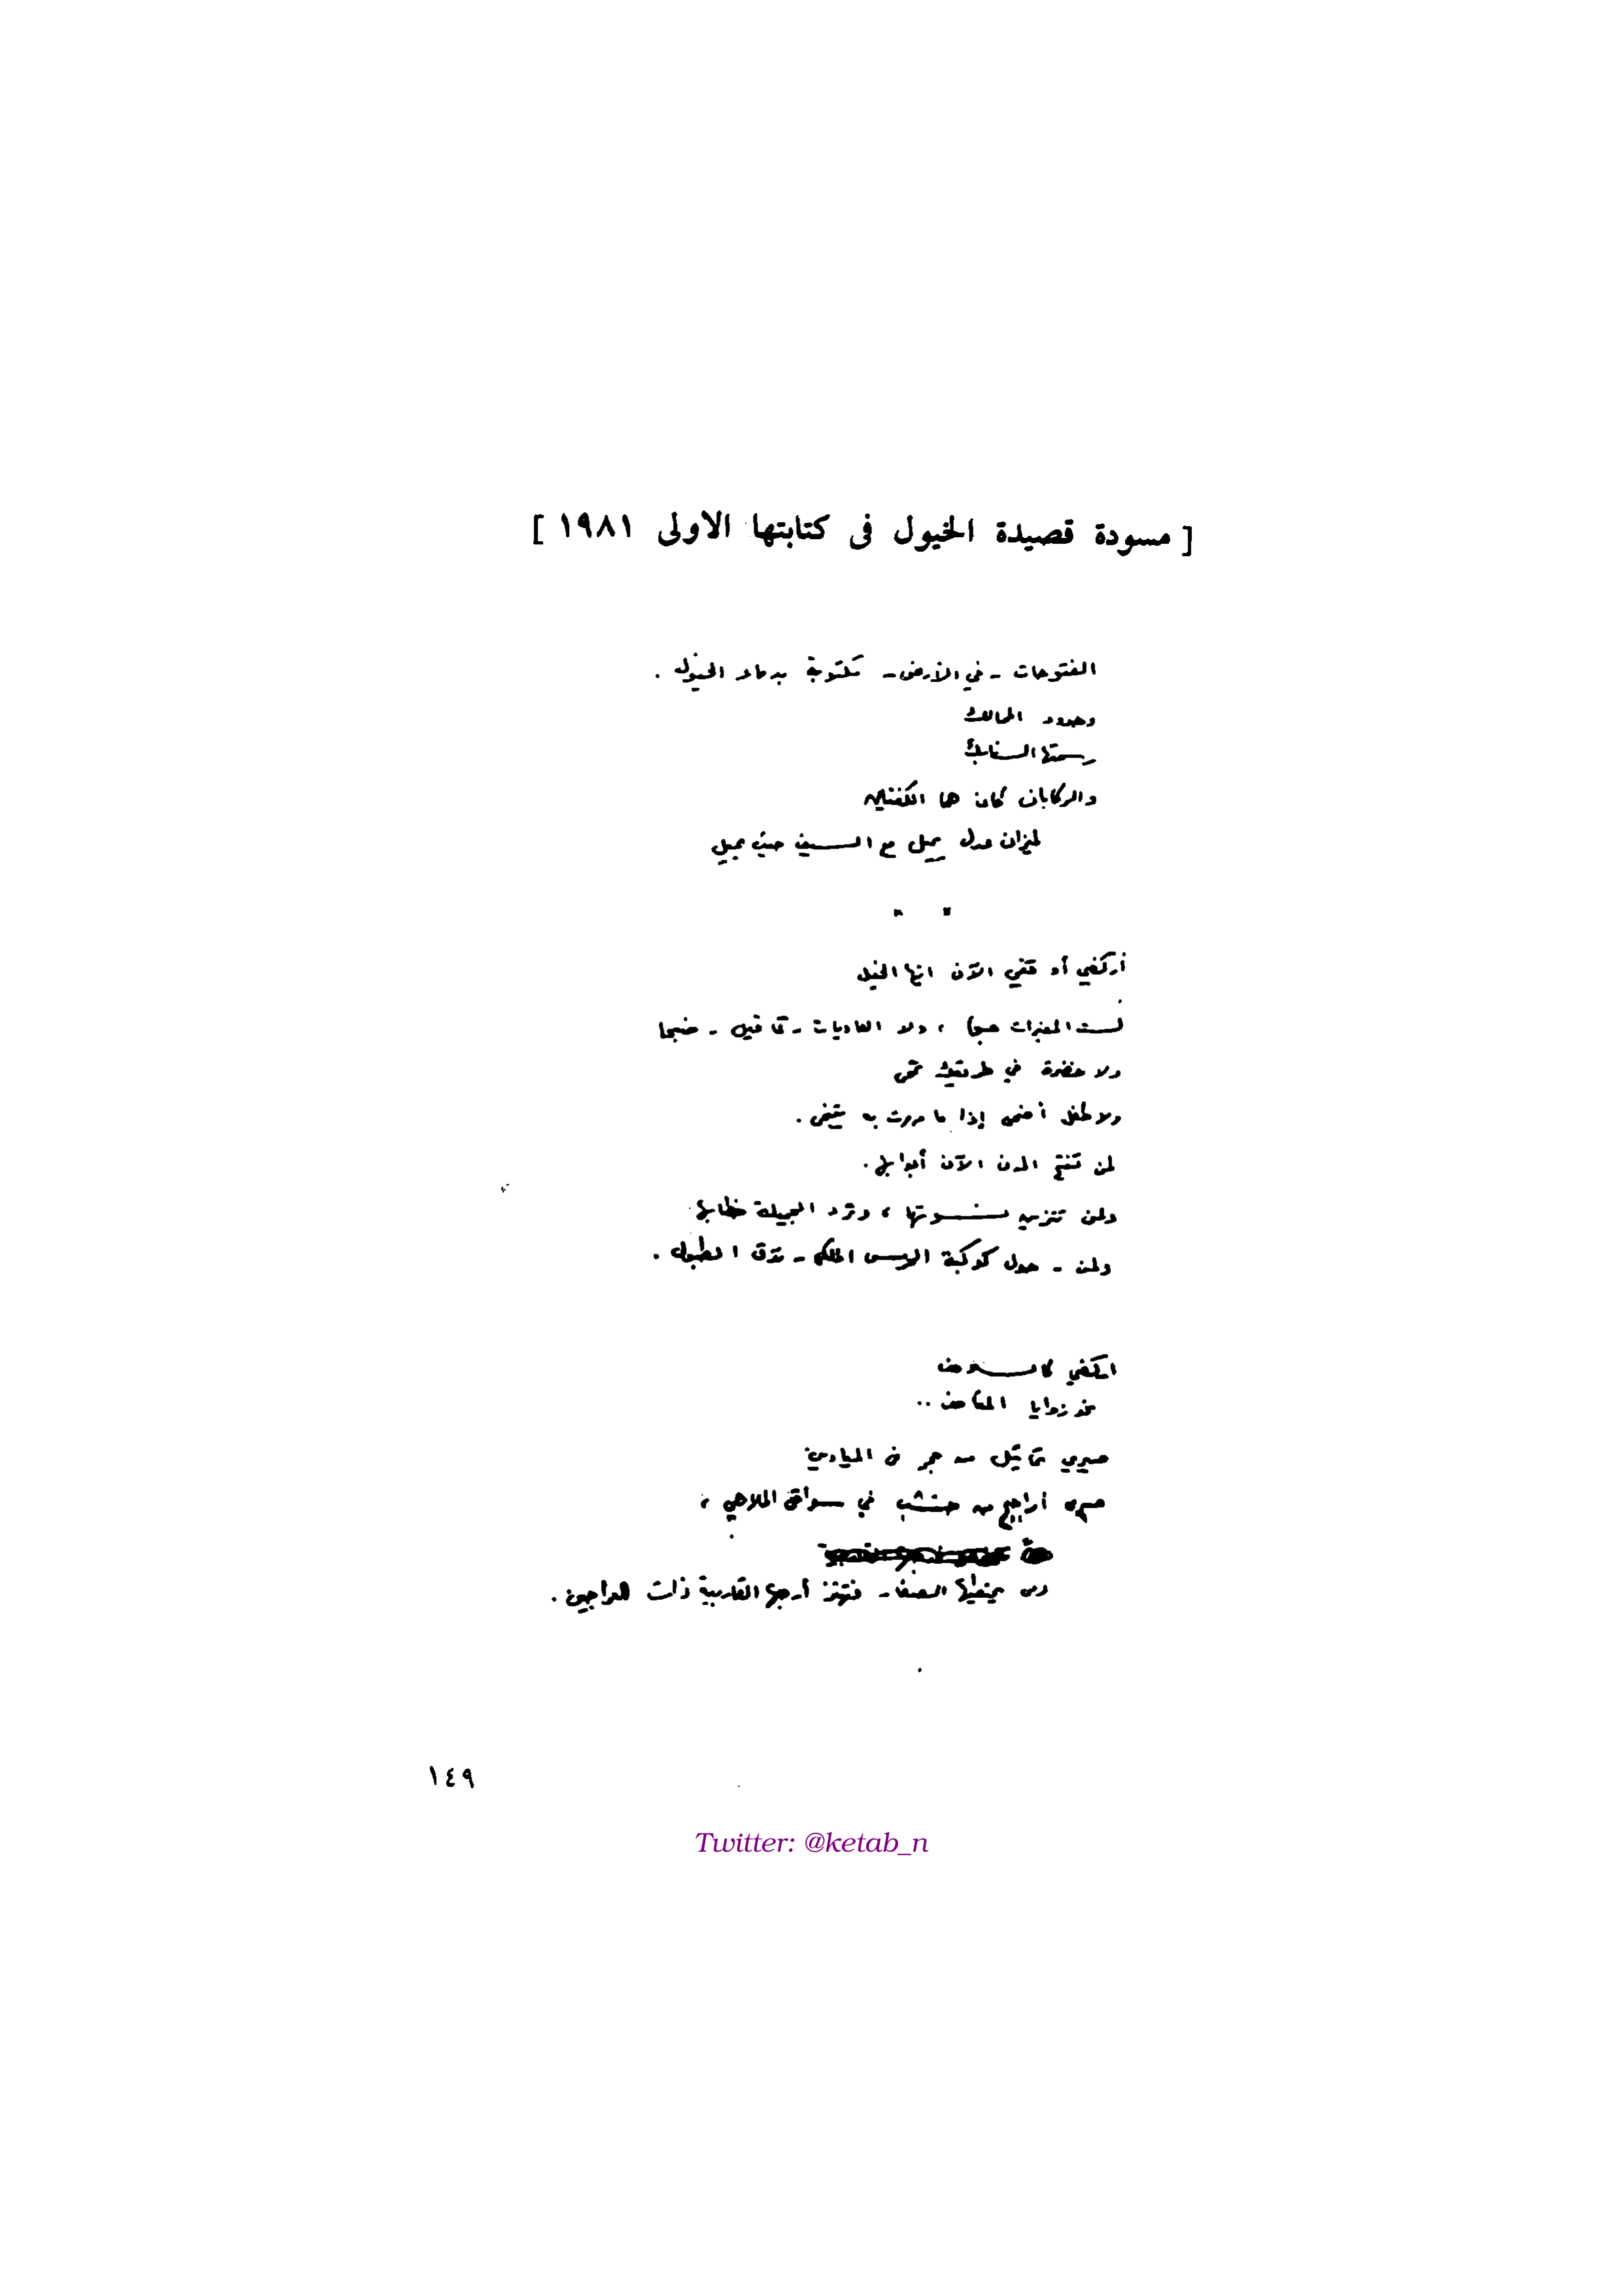 [ مسودة قصيدة الخيول فى كتابتها الاولى ١٩٨١ ]
الفتوحات - في الأرض - مكتوبة بدماء الخيول .
وحدود الممالك
رسمتها السنابك
والركابان كانا هما الكفتين
لميزان عدل يميل مع السيف حيث يميل
أركضي أو قفي الآن ايتها الخيل
لست المغيرات صبحا ، ولا العاديات - كما قيل - ضبحا
ولا خضرة في طريقك تمحى
ولا طفل أضحى إذا ما مررت به يتنحى .
لن تفتح المدن الآن أبوابها .
ولن تتزين نسوتها ، وترد الجميلة خطابها
ولن - حول كوكبة الحرس الملكي - تدق الطبول .
اركضي كالسلاحف
نحو زوايا المتاحف ..
صيري تماثيل من حجر في الميادين
صيري أراجيح من خشب في سواقي الملاهي ،
ذات
١٤٩
Twitter: @ketab_n